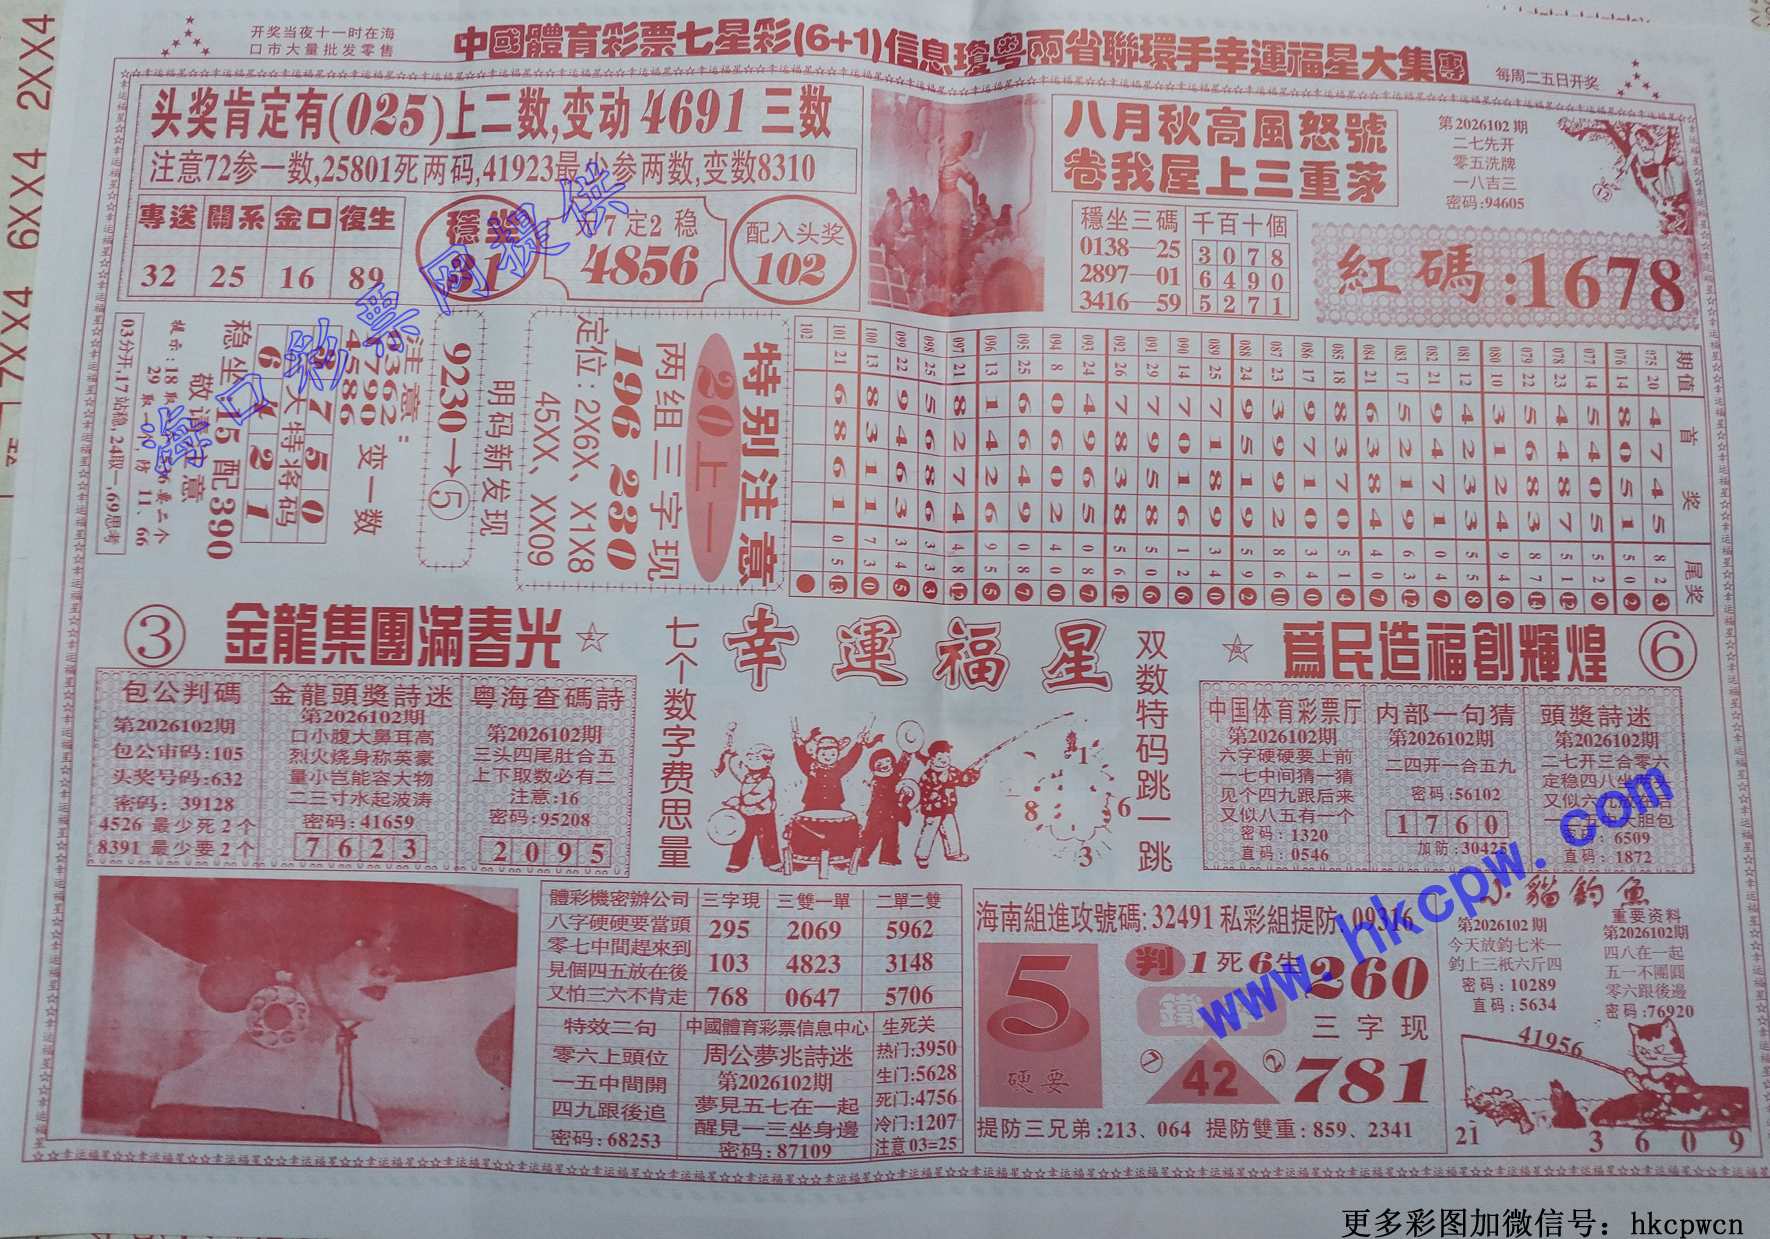 开奖当夜十一时在海
口市大量批发零售
中國體育彩票七星彩(6+1)信息瓊粤兩省聯環手幸運福星大集團
每周二五日开奖
头奖肯定有(025)上二数,变动4691三数
注意72参一数,25801死两码,41923最少参两数,变数8310
專送 關系 金口 復生
32 25 16 89
穩坐
31
7定2稳
4856
配入头奖
102
八月秋高風怒號
卷我屋上三重茅
穩坐三碼
0138—25
2897—01
3416—59
千百十個
3078
6490
5271
第2026102期
二七先开
零五洗牌
一八吉三
密码:94605
紅碼:1678
特别注意
20上一
两组三字现
196 230
定位:2X6X、X1X8
45XX、XX09
明码新发现
9230→⑤
注意:
4586 变一数
大特将码
敬请注意
稳坐15配390
03分开,17站稳,24取一,69思考
期值 首奖 尾奖
075 20 4 7 4 5 8 2 3
076 14 8 0 5 1 5 0 2
077 14 5 4 0 5 5 2 9
078 23 4 4 8 7 5 1 12
079 22 5 6 8 3 8 7 14
080 10 3 1 2 4 9 4 6
081 12 4 2 3 3 5 5 8
082 21 9 4 7 1 0 4 7
083 17 5 2 1 9 6 3 12
084 21 6 3 8 4 4 0 7
085 18 8 3 7 0 5 1 4
086 17 9 7 1 0 3 4 0
087 23 3 9 9 2 8 6 10
088 24 9 5 1 9 5 9 2
089 25 7 1 8 9 3 4 0
090 14 7 0 1 6 1 2 6
091 29 7 9 5 8 5 0 6
092 26 7 8 3 8 5 6 12
093 24 4 9 6 5 0 8 7
094 8 0 6 0 2 4 0 0
095 25 6 6 4 9 0 8 7
096 13 1 4 2 6 9 5 5
097 21 8 2 7 4 4 8 12
098 25 5 6 8 6 3 3 3
099 22 9 4 6 3 3 4 5
100 13 8 3 1 1 7 3 0
101 21 6 8 6 1 0 5 13
102
③ 金龍集團滿春光
包公判碼
第2026102期
包公审码:105
头奖号码:632
密码:39128
4526 最少死2个
8391 最少要2个
金龍頭獎詩迷
第2026102期
口小腹大鼻耳高
烈火烧身称英豪
量小岂能容大物
二三寸水起波涛
密码:41659
7623
粤海查碼詩
第2026102期
三头四尾肚合五
上下取数必有二
注意:16
密码:95208
2095
七个数字费思量
幸運福星
双数特码跳一跳
1
8
6
3
爲民造福創輝煌 ⑥
中国体育彩票厅
第2026102期
六字硬硬要上前
一七中间猜一猜
见个四九跟后来
又似八五有一个
密码:1320
直码:0546
内部一句猜
第2026102期
二四开一合五九
密码:56102
1760
加防:30425
頭獎詩迷
第2026102期
二七开三合零六
密码:6509
直码:1872
體彩機密辦公司
八字硬硬要當頭
零七中間趕來到
見個四五放在後
又怕三六不肯走
三字現 三雙一單 二單二雙
295 2069 5962
103 4823 3148
768 0647 5706
特效二句
零六上頭位
一五中間開
四九跟後追
密码:68253
中國體育彩票信息中心
周公夢兆詩迷
第2026102期
夢見五七在一起
醒見一三坐身邊
密码:87109
生死关
热门:3950
生门:5628
死门:4756
冷门:1207
注意03=25
海南組進攻號碼:32491 私彩組提防:09316
5
硬要
判 1死6生
鐵
42
260
三字现
781
提防三兄弟:213、064 提防雙重:859、2341
小貓釣魚
第2026102期
今天放釣七米一
釣上三衹六斤四
密码:10289
直码:5634
重要资料
第2026102期
四八在一起
五一不團圓
零六跟後邊
密码:76920
41956
21
3609
海口彩票网提供
www.hkcpw.com
更多彩图加微信号：hkcpwcn